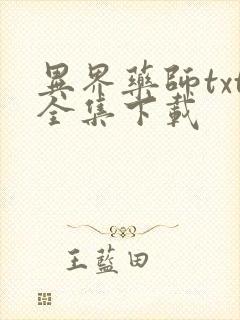 異界藥師txt
全集下載
王藍田